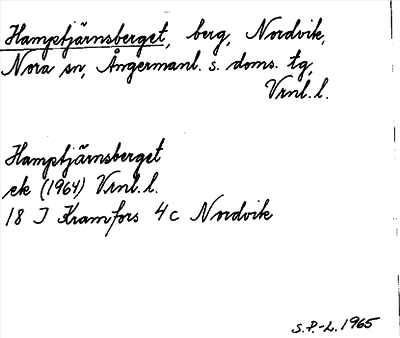 Hamptjärnsberget, berg, Nordvik,
Nora sn, Ångermanl. s. doms. tg,
Vrnl. l.
Hamptjärnsberget
ek (1964) Vrnl. l.
18 J Kramfors 4c Nordvik
S.P.-L. 1965